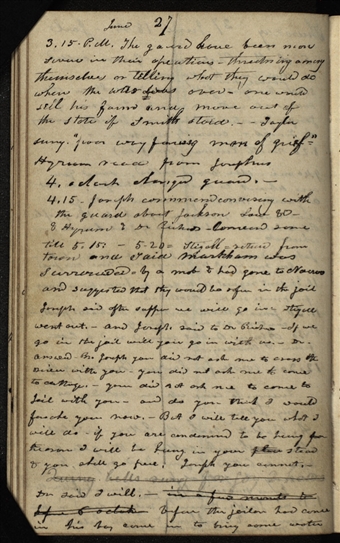 June 27
3.15 P.M. The guard have been more
severe in their operations - threatening among
themselves or telling what they would do
when the was over - one would
sell his farm and move out of
the state if Smith staid. - Taylor
sung. "poor wayfaring man of grief"
Hyrum read from Josephus
4. oclock changed guard. -
4.15. Joseph commend conversing with
the guard about Jackson Law &c -
& Hyrum & Dr Richards Conversed some
till 5.15 - 5-20 - return from
town and said Markham was
surrounded by a mob & had gone to Nauvoo
and suggested that they would be safer in the jail
Joseph said after supper we will go in
went out. - and Joseph said to Dr Richards - if we
go in the jail will you go in with us. - Dr
answd. Bro Joseph you did not ask me to cross the
river with you - you did not ask me to come
to Carthage - you did not ask me to come to
Jail with you - and do you think I would
forsake you now. - But I will tell you what I
will do - if you are condemned to be hung for
treason I will be hung in your stead
& you shall go free. Joseph you cannot. -
Dr said I will. - in a few minutes
before 6 oclock before the jailor had come
in his boy come in to bring some water